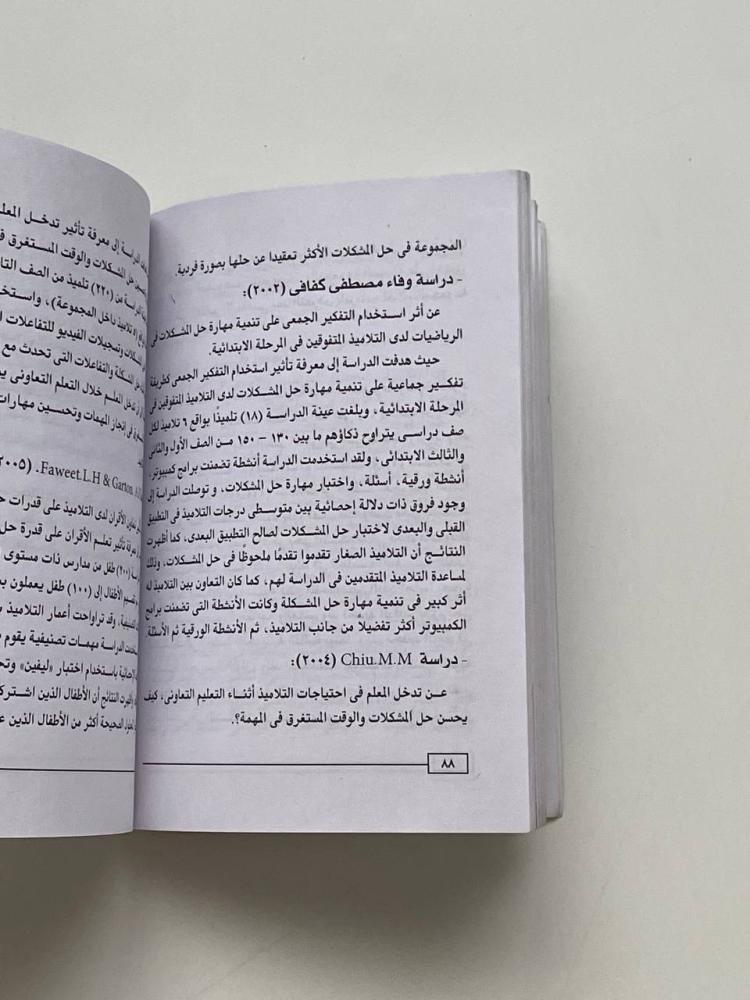 المجموعة فى حل المشكلات الأكثر تعقيدا عن حلها بصورة فردية.
- دراسة وفاء مصطفى كفافى (٢٠٠٢):
عن أثر استخدام التفكير الجمعى على تنمية مهارة حل المشكلات فى
الرياضيات لدى التلاميذ المتفوقين فى المرحلة الابتدائية.
حيث هدفت الدراسة إلى معرفة تأثير استخدام التفكير الجمعى كطريقة
تفكير جماعية على تنمية مهارة حل المشكلات لدى التلاميذ المتفوقين فى
المرحلة الابتدائية، وبلغت عينة الدراسة (١٨) تلميذًا بواقع ٦ تلاميذ لكل
صف دراسى يتراوح ذكاؤهم ما بين ١٣٠ – ١٥٠ من الصف الأول والثانى
والثالث الابتدائى، ولقد استخدمت الدراسة أنشطة تضمنت برامج كمبيوتر،
أنشطة ورقية، أسئلة، واختبار مهارة حل المشكلات، و توصلت الدراسة إلى
وجود فروق ذات دلالة إحصائية بين متوسطى درجات التلاميذ فى التطبيق
القبلى والبعدى لاختبار حل المشكلات لصالح التطبيق البعدى، كما أظهرت
النتائج أن التلاميذ الصغار تقدموا تقدمًا ملحوظًا فى حل المشكلات، وذلك
لمساعدة التلاميذ المتقدمين فى الدراسة لهم، كما كان التعاون بين التلاميذ له
أثر كبير فى تنمية مهارة حل المشكلة وكانت الأنشطة التى تضمنت برامج
الكمبيوتر أكثر تفضيلاً من جانب التلاميذ، ثم الأنشطة الورقية ثم الأسئلة
- دراسة Chiu.M.M (٢٠٠٤):
عن تدخل المعلم فى احتياجات التلاميذ أثناء التعليم التعاونى، كيف
يحسن حل المشكلات والوقت المستغرق فى المهمة؟.
٨٨
إلى معرفة تأثير تدخل المعلم
حل المشكلات والوقت المستغرق فى
من (٢٢٠) تلميذ من الصف
تلاميذ داخل المجموعة)،
وتسجيلات الفيديو للتفاعلات
والتفاعلات التى تحدث مع
تدخل المعلم خلال التعلم التعاونى
فى إنجاز المهمات وتحسين مهارات
Faweet.L.H & Garton. (٢٠٠٥)
الأقران لدى التلاميذ على قدرات
معرفة تأثير تعلم الأقران على قدرة حل
(٢٠٠) طفل من مدارس ذات مستوى
تقسيم الأطفال إلى (١٠٠) طفل يعملون
وقد تراوحت أعمار التلاميذ
الدراسة مهمات تصنيفية يقوم
باستخدام اختبار «ليفين»
النتائج أن الأطفال الذين
الصحيحة أكثر من الأطفال الذين